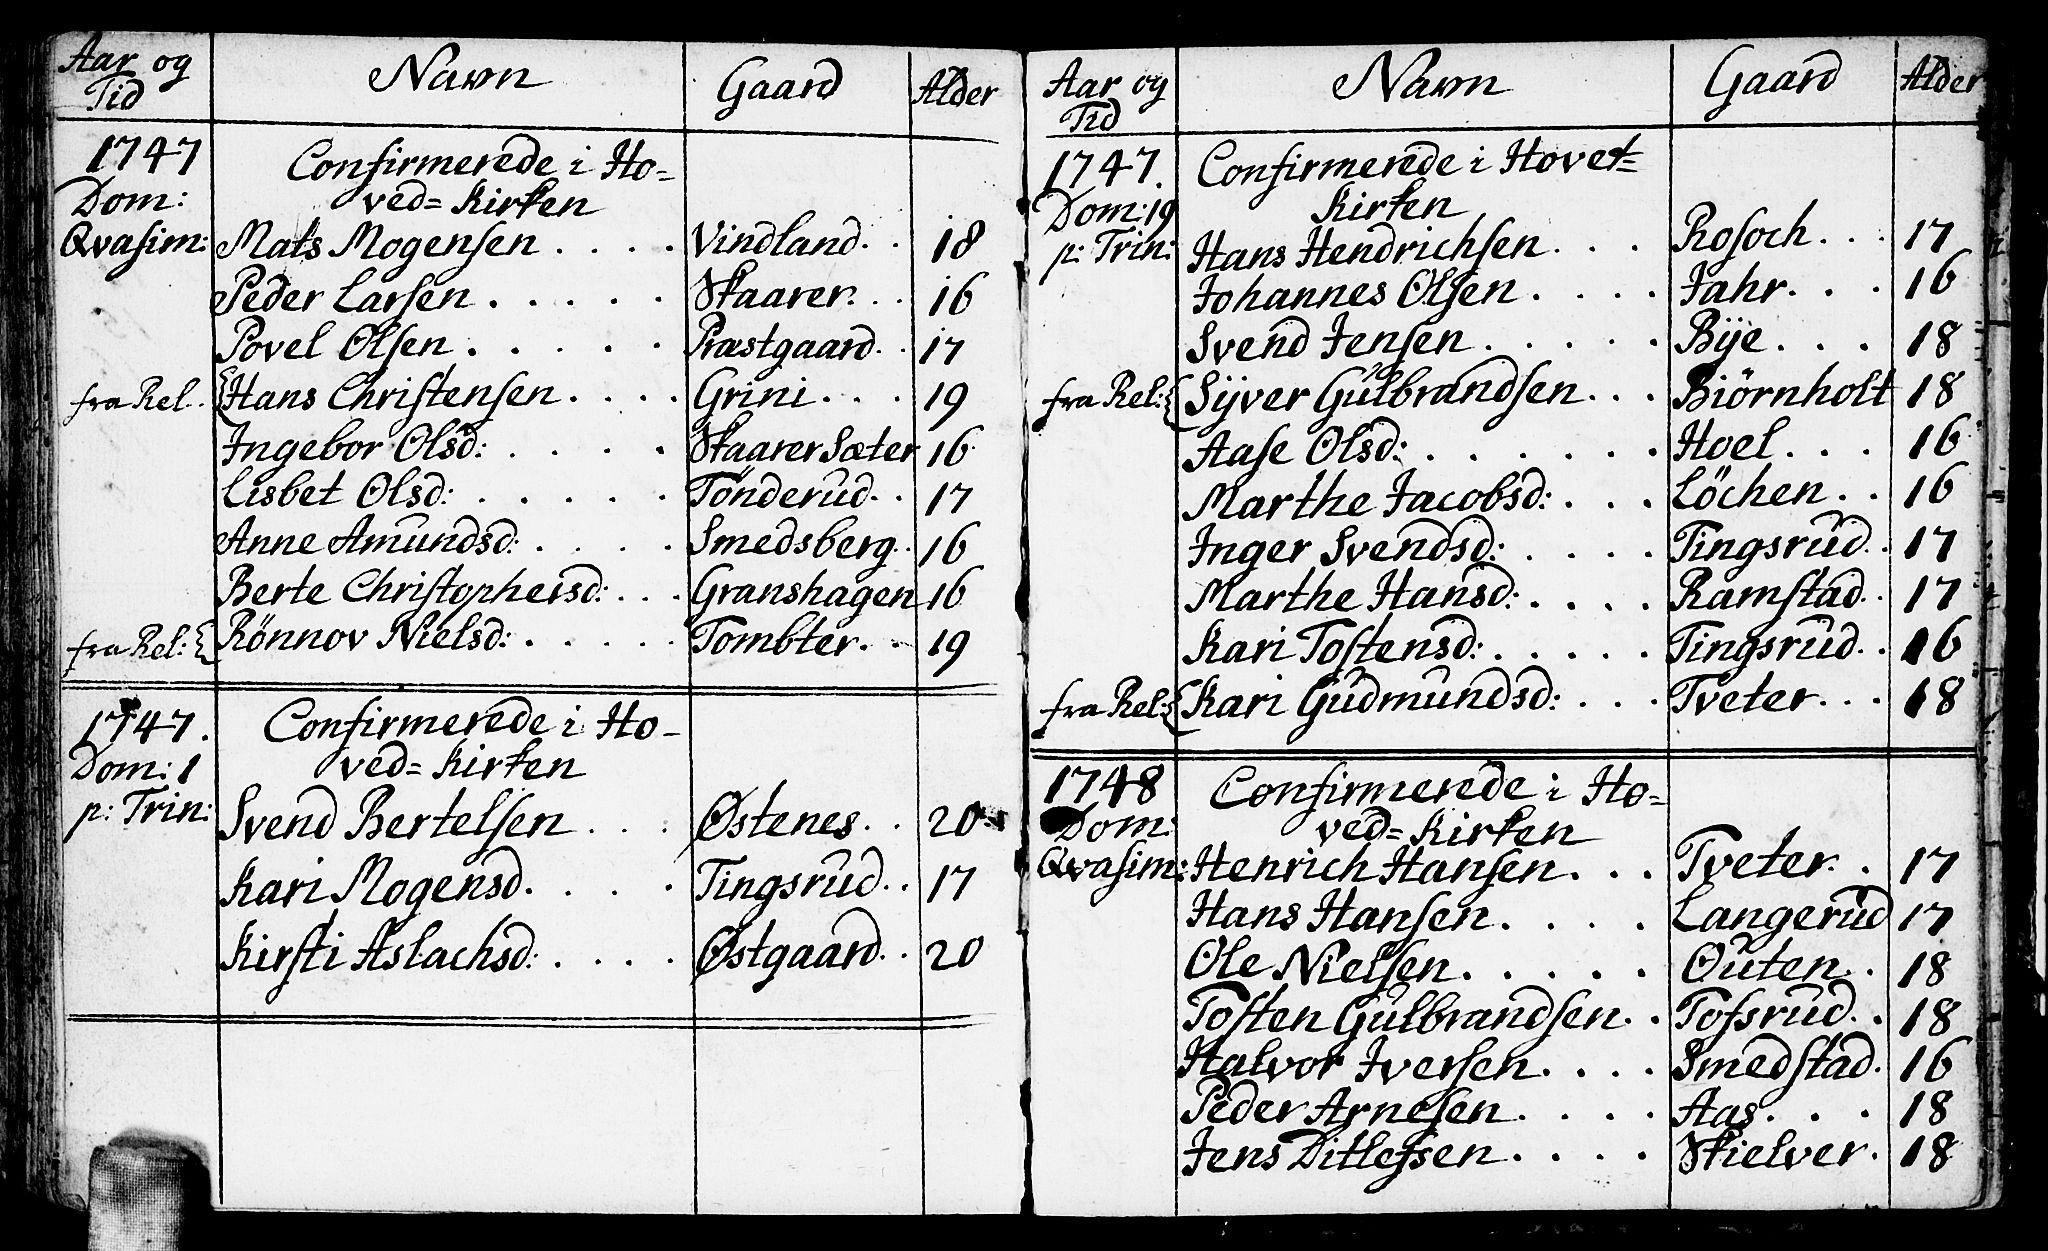 Aar og Tid Navn Gaard Alder
1747 Confirmerede i Ho-
Dom: ved= Kirken
Qvasim: Mats Mogensen . . . . Vindland . . 18
Peder Larsen . . . . . Skaarer . . 16
Povel Olsen . . . . . Præstgaard . . 17
fra Rel. { Hans Christensen . . . . Grini . . . 19
Ingebor Olsd: . . . . Skaarer Sæter 16
Lisbet Olsd: . . . . . Tönderud . . 17
Anne Amundsd: . . . . Smedsberg . . 16
Berte Christophersd: . . . Granshagen 16
fra Rel: { Rönnov Nielsd: . . . . . Tombter . . 19
1747. Confirmerede i Ho-
Dom: 1 ved= Kirken
p: Trin: Svend Bertelsen . . . Østenes . . 20
Kari Mogensd. . . . . Tingsrud . . 17
Kirsti Aslachsd: . . . . Østgaard . . 20
Aar og Tid Navn Gaard Alder
1747. Confirmerede i Hovet=
Dom: 19 Kirken
p: Trin: Hans Hendrichsen . . . Rosoch . . . 17
Johannes Olsen . . . . Jahr . . . 16
Svend Jensen . . . . . Bije . . . 18
fra Rel: { Sijver Gulbrandsen . . . Biörnholt 18
Aase Olsd: . . . . . . Hoel . . . 16
Marthe Jacobsd: . . . Löchen . . 16
Inger Svendsd: . . . . Tingsrud . . 17
Marthe Hansd: . . . . Ramstad . . 17
Kari Tostensd: . . . . . Tingsrud . . 16
fra Rel: { Kari Gudmundsd: . . . Tveter . . . 18
1748 Confirmerede i Ho=
Dom: ved= Kirken
Qvasim: Henrich Hansen . . . Tveter . . 17
Hans Hansen . . . . Langerud 17
Ole Nielsen . . . . . Outen . . 18
Tosten Gulbrandsen . . Tossrud . . 18
Halvor Iversen . . . . Smedstad . 16
Peder Arnesen . . . . Aas . . . 18
Jens Ditlefsen . . . . Skielver . 18